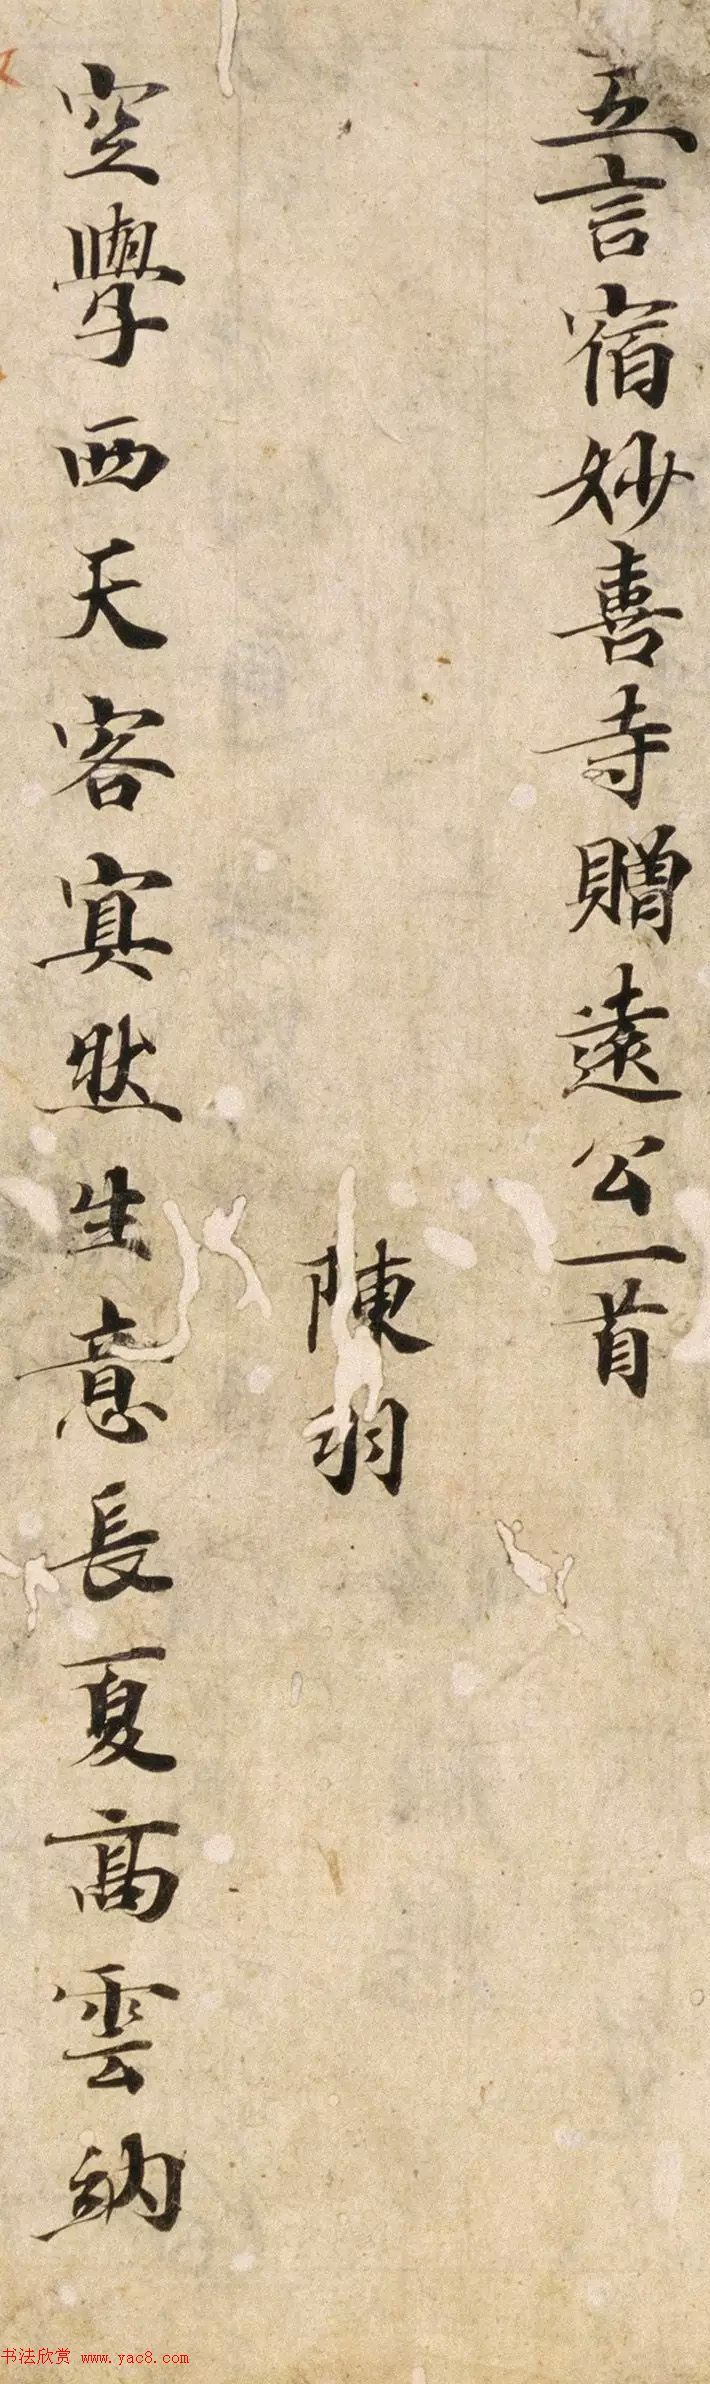 五言宿妙喜寺贈遠公一首
陳羽
空學西天客冥然生意長夏高雲納
书法欣赏 www.yac8.com